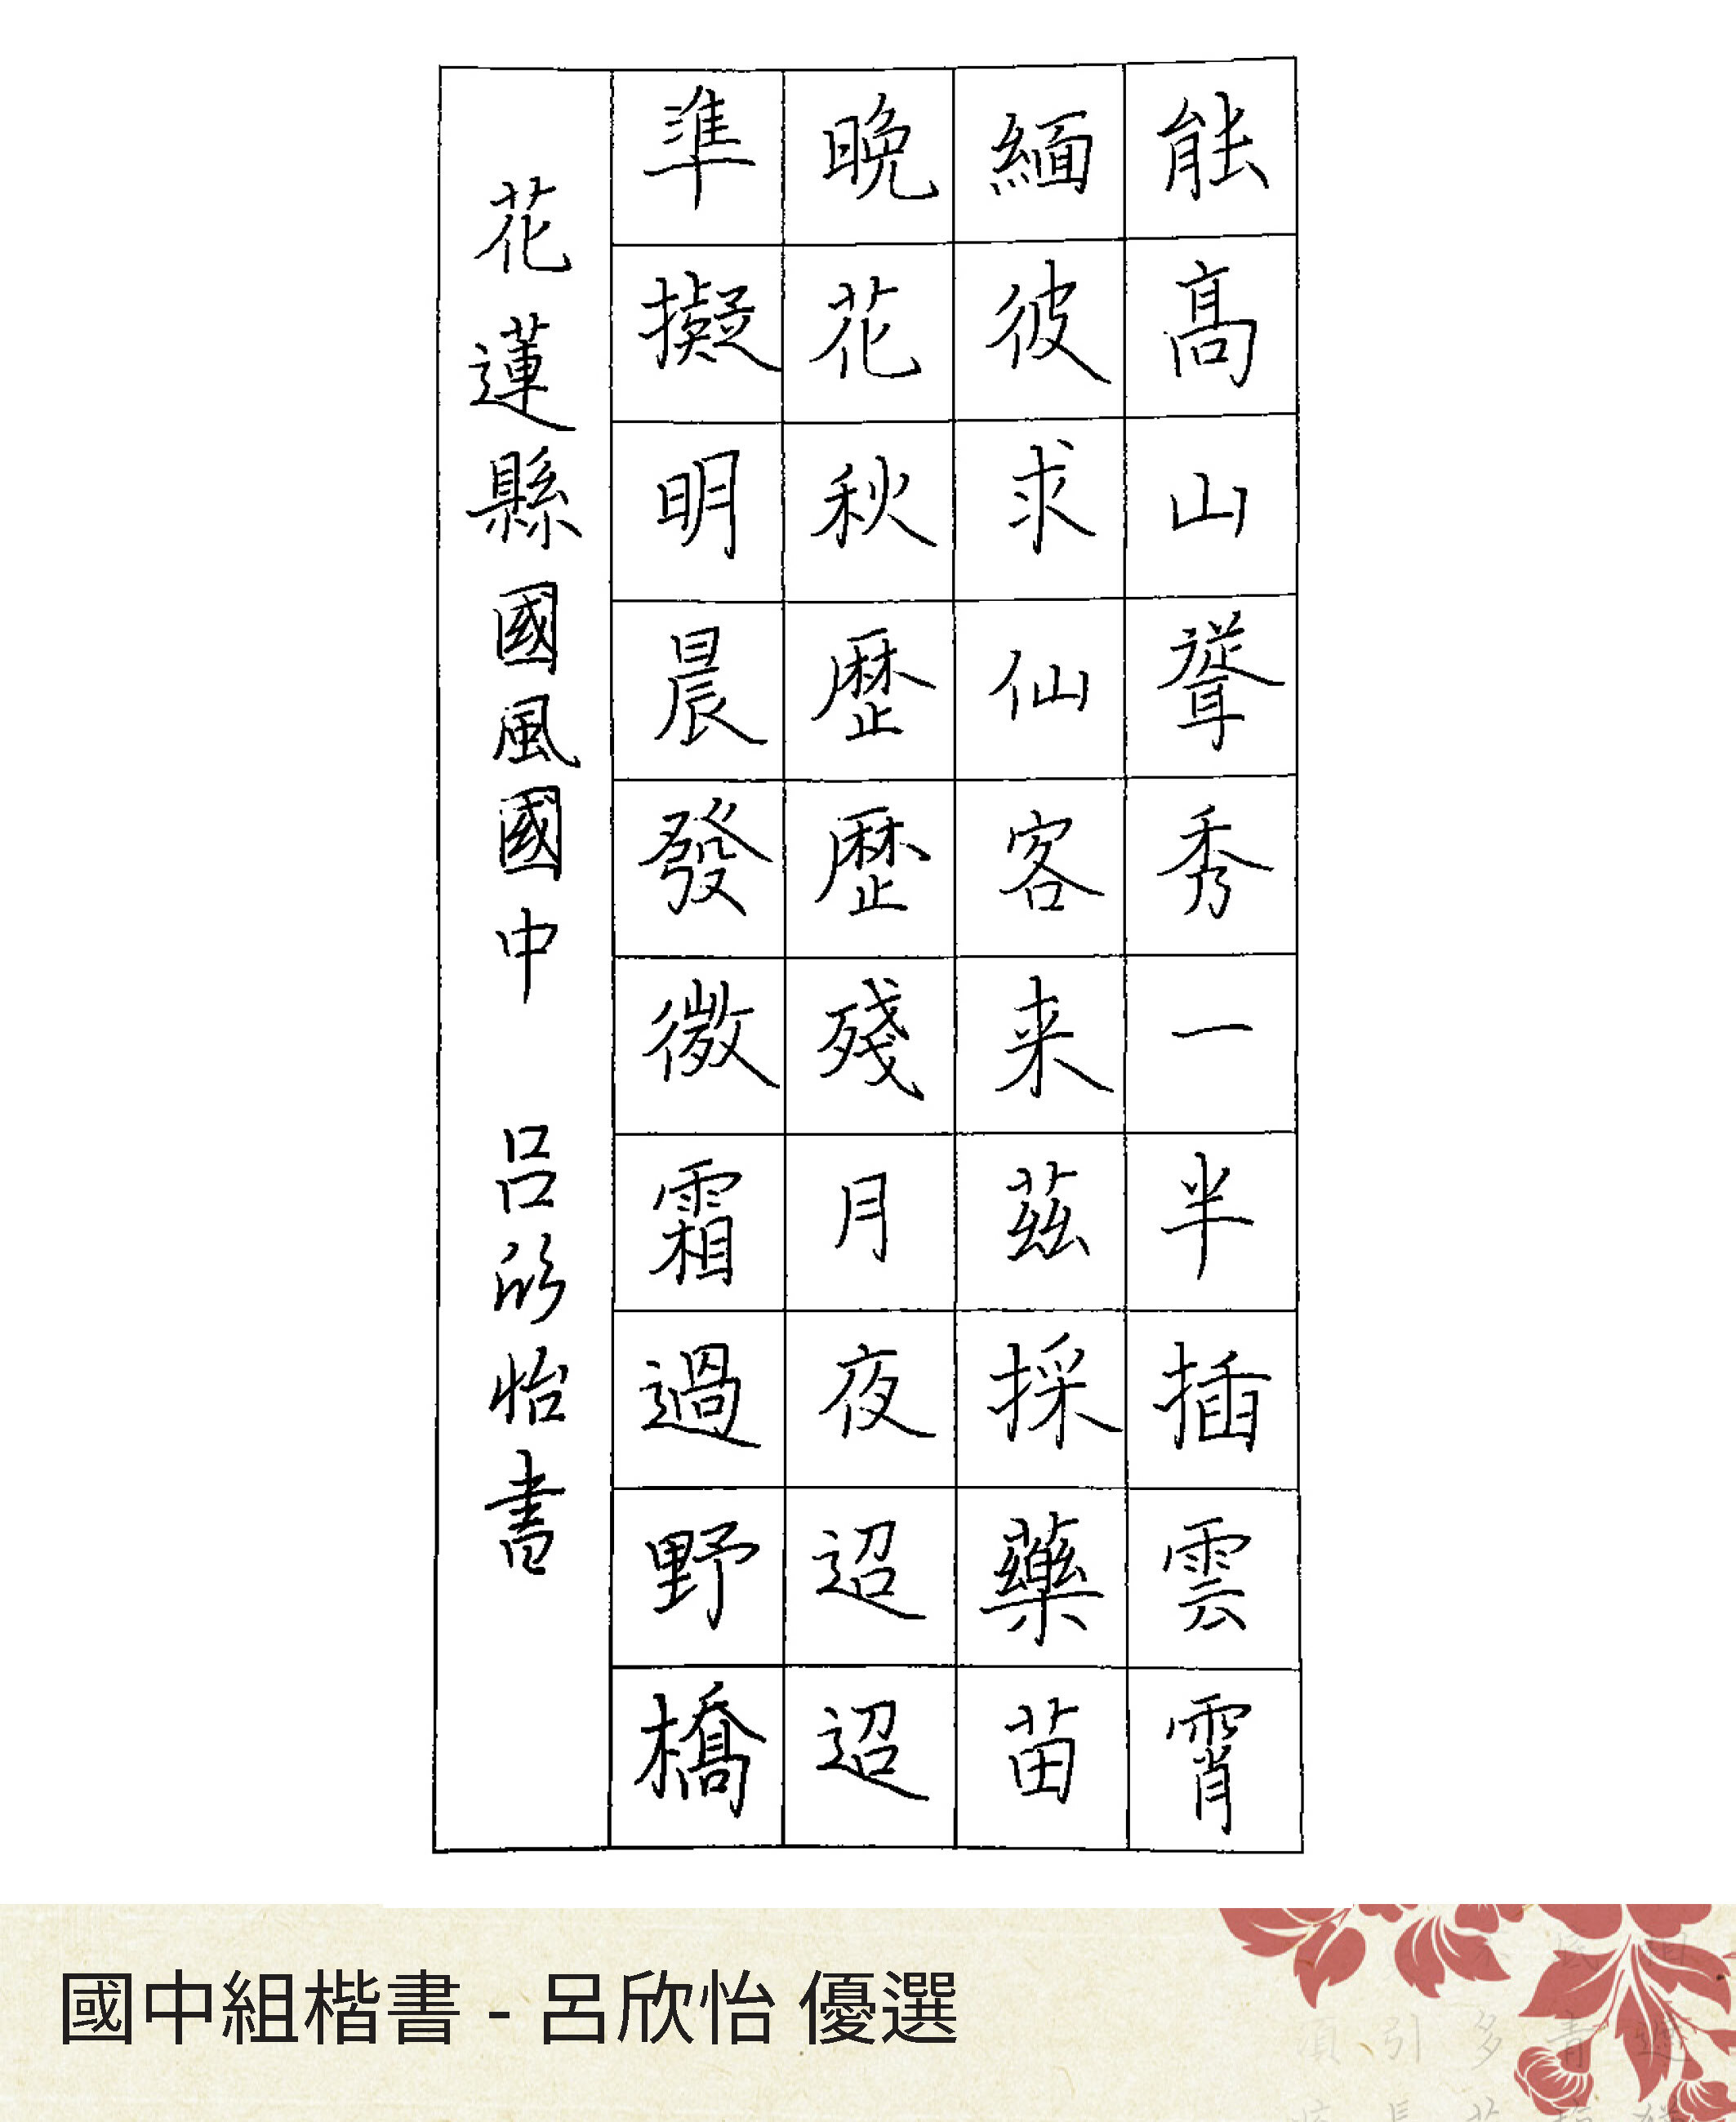 能高山聳秀一半插雲霄
緬彼求仙客来茲採藥苗
晚花秋歷歷殘月夜迢迢
準擬明晨發微霜過野橋
花蓮縣國風國中 呂欣怡書
國中組楷書 - 呂欣怡 優選